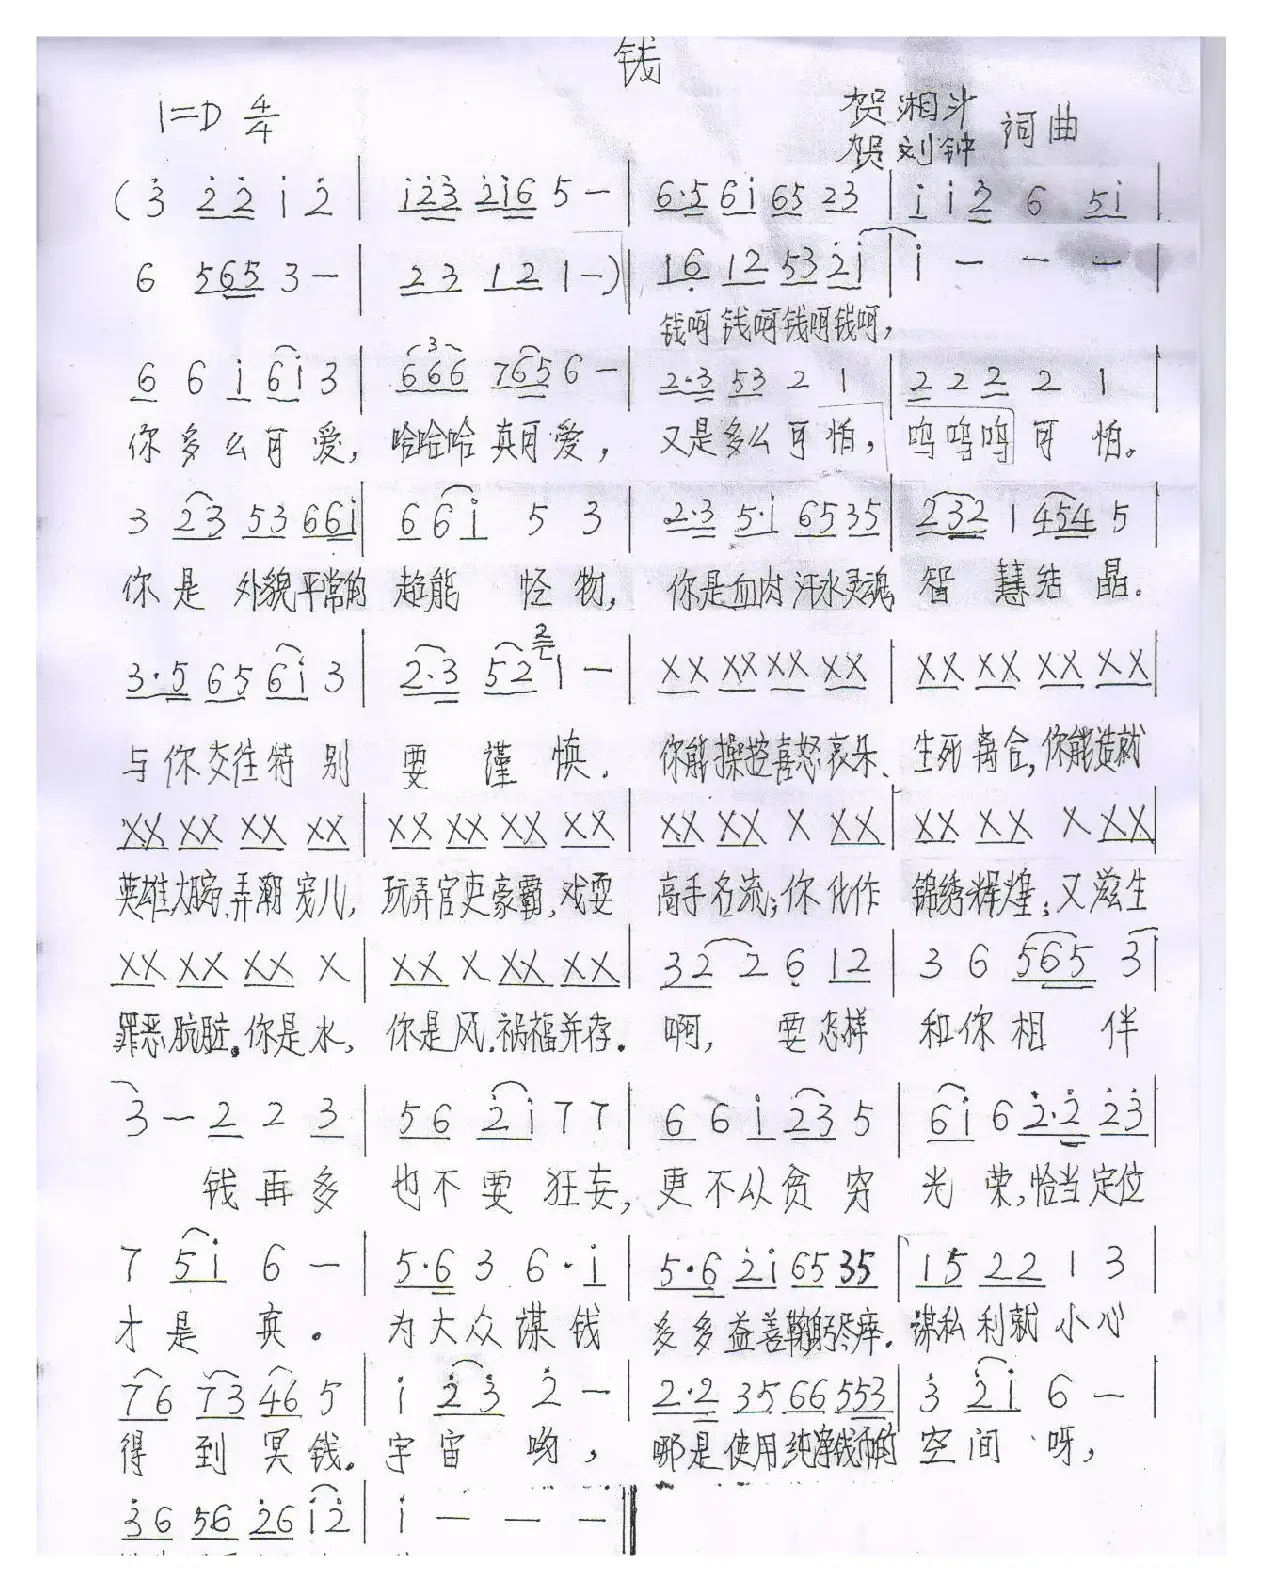 钱
1=D 4/4
贺湘汁 贺刘钟 词曲
(3 2 2 1 2 | i23 2i6 5 — | 6·5 6i 65 23 | i i 2 6 5i |
6 565 3 — | 23 12 1 —) | 16 12 53 2i | i — — — |
钱呵钱呵钱呵钱呵,
6 6 i 6i 3 | 666 765 6 — | 2·3 53 2 1 | 2 2 2 2 1 |
你多么可爱, 哈哈哈真可爱, 又是多么可怕, 呜呜呜可怕。
3 23 53 66i | 6 6i 5 3 | 2·3 5·i 65 35 | 232 1 454 5 |
你是外貌平常的 超能怪物, 你是血肉汗水灵魂 智慧结晶.
3·5 65 6i 3 | 2·3 52 2 1 — | XX XX XX XX | XX XX XX XX |
与你交往特别 要谨慎. 你能操控喜怒哀乐、 生死离合, 你能造就
XX XX XX XX | XX XX XX XX | XX XX X XX | XX XX X XX |
英雄大腕, 弄潮宠儿, 玩弄官吏豪霸, 戏耍 高手名流; 你化作 锦绣辉煌; 又滋生
XX XX XX X | XX X XX XX | 32 2 6 12 | 3 6 565 3 |
罪恶肮脏。你是水, 你是风. 祸福并存. 啊, 要怎样 和你相伴
3 — 2 2 3 | 56 2i 7 7 | 6 6 i 23 5 | 6i 6 2·2 23 |
钱再多 也不要狂妄, 更不从贫穷 光荣, 恰当定位
7 5i 6 — | 5·6 3 6·i | 5·6 2i 65 35 | 15 22 1 3 |
才是真。 为大众谋钱 多多益善鞠躬尽瘁. 谋私利就小心
76 73 46 5 | i 23 2 — | 2·2 35 66 553 | 3 2i 6 — |
得到冥钱。宇宙哟, 哪是使用纯净钱币的 空间呀,
36 56 26 i2 | i — — — ‖